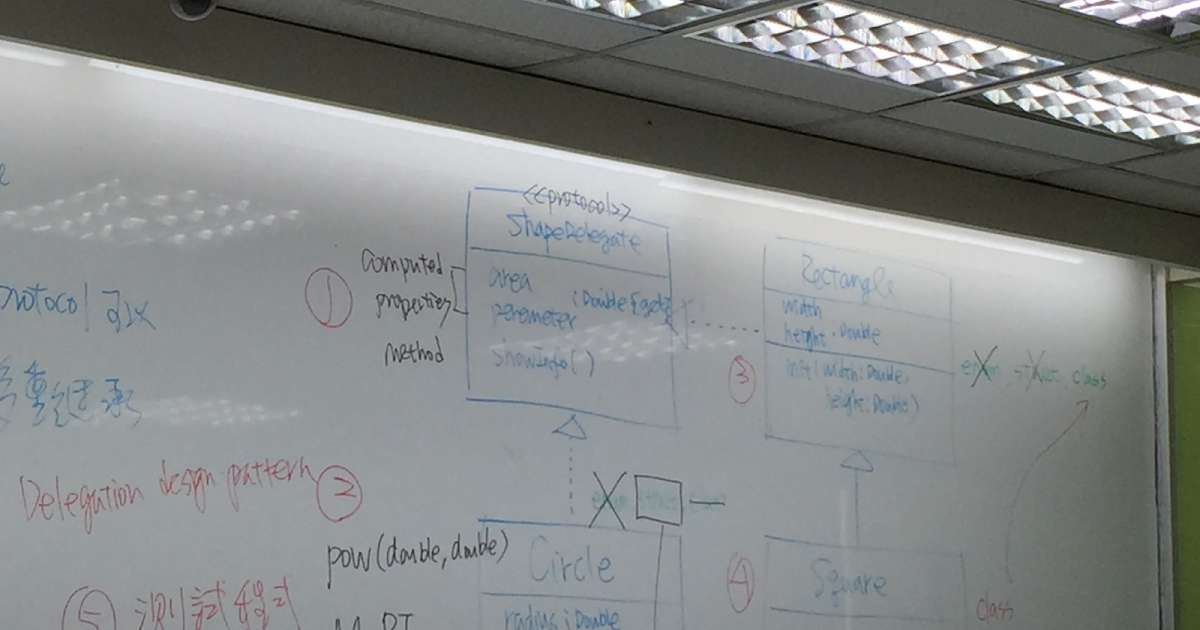 <<protocol>>
ShapeDelegate
①
computed
properties
method
area
peremeter
: Double {get}
showInfo()
Rectangle
width
height : Double
③
init(width: Double,
height: Double)
enum, struct, class
protocol 可以
多重繼承
Delegation design pattern
②
enum struct class
pow(double, double)
Circle
radius : Double
④
Square
class
⑤ 測試程式
M_PI